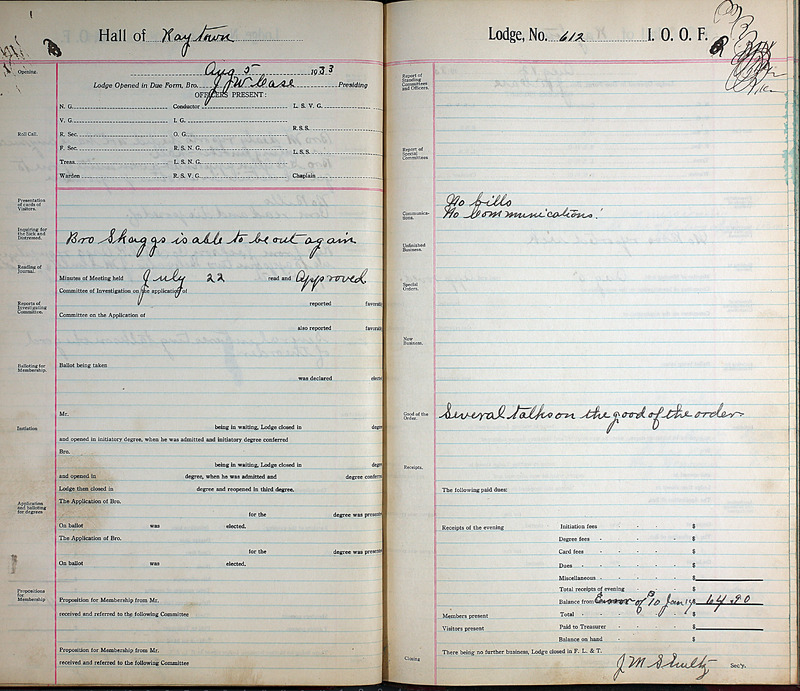 Hall of Raytown
Opening.
Aug 5 1933
Lodge Opened in Due Form, Bro. J W Case Presiding
OFFICERS PRESENT:
Roll Call.
N. G. Conductor L. S. V. G.
V. G. I. G.
R. Sec. O. G. R.S.S.
F. Sec. R. S. N. G. L.S.S.
Treas. L. S. N. G.
Warden R. S. V. G. Chaplain
Presentation of cards of Visitors.
Inquiring for the Sick and Distressed.
Bro Skaggs is able to be out again
Reading of Journal.
Minutes of Meeting held July 22 read and Approved
Committee of Investigation on the application of
Reports of Investigating Committee.
reported favorab
Committee on the Application of
also reported favorab
Balloting for Membership.
Ballot being taken
was declared elected
Mr.
Initiation
being in waiting, Lodge closed in degre
and opened in initiatory degree, when he was admitted and initiatory degree conferred
Bro.
being in waiting, Lodge closed in degre
and opened in degree, when he was admitted and degree conferre
Lodge then closed in degree and reopened in third degree.
Application and balloting for degrees
The Application of Bro.
for the degree was presente
On ballot was elected.
The Application of Bro.
for the degree was presente
On ballot was elected.
Propositions for Membership
Proposition for Membership from Mr.
received and referred to the following Committee
Proposition for Membership from Mr.
received and referred to the following Committee
Lodge, No. 612 I. O. O. F.
Report of Standing Committees and Officers.
Report of Special Committees
Communications.
No bills
No Communications.
Unfinished Business.
Special Orders.
New Business.
Good of the Order.
Several talks on the good of the order
Receipts.
The following paid dues:
Receipts of the evening Initiation fees $
Degree fees $
Card fees $
Dues $
Miscellaneous $
Total receipts of evening $
Balance from Error of $10 Jan 14 64.90
Members present Total $
Visitors present Paid to Treasurer $
Balance on hand $
Closing
There being no further business, Lodge closed in F. L. & T.
J M Shultz Sec'y.